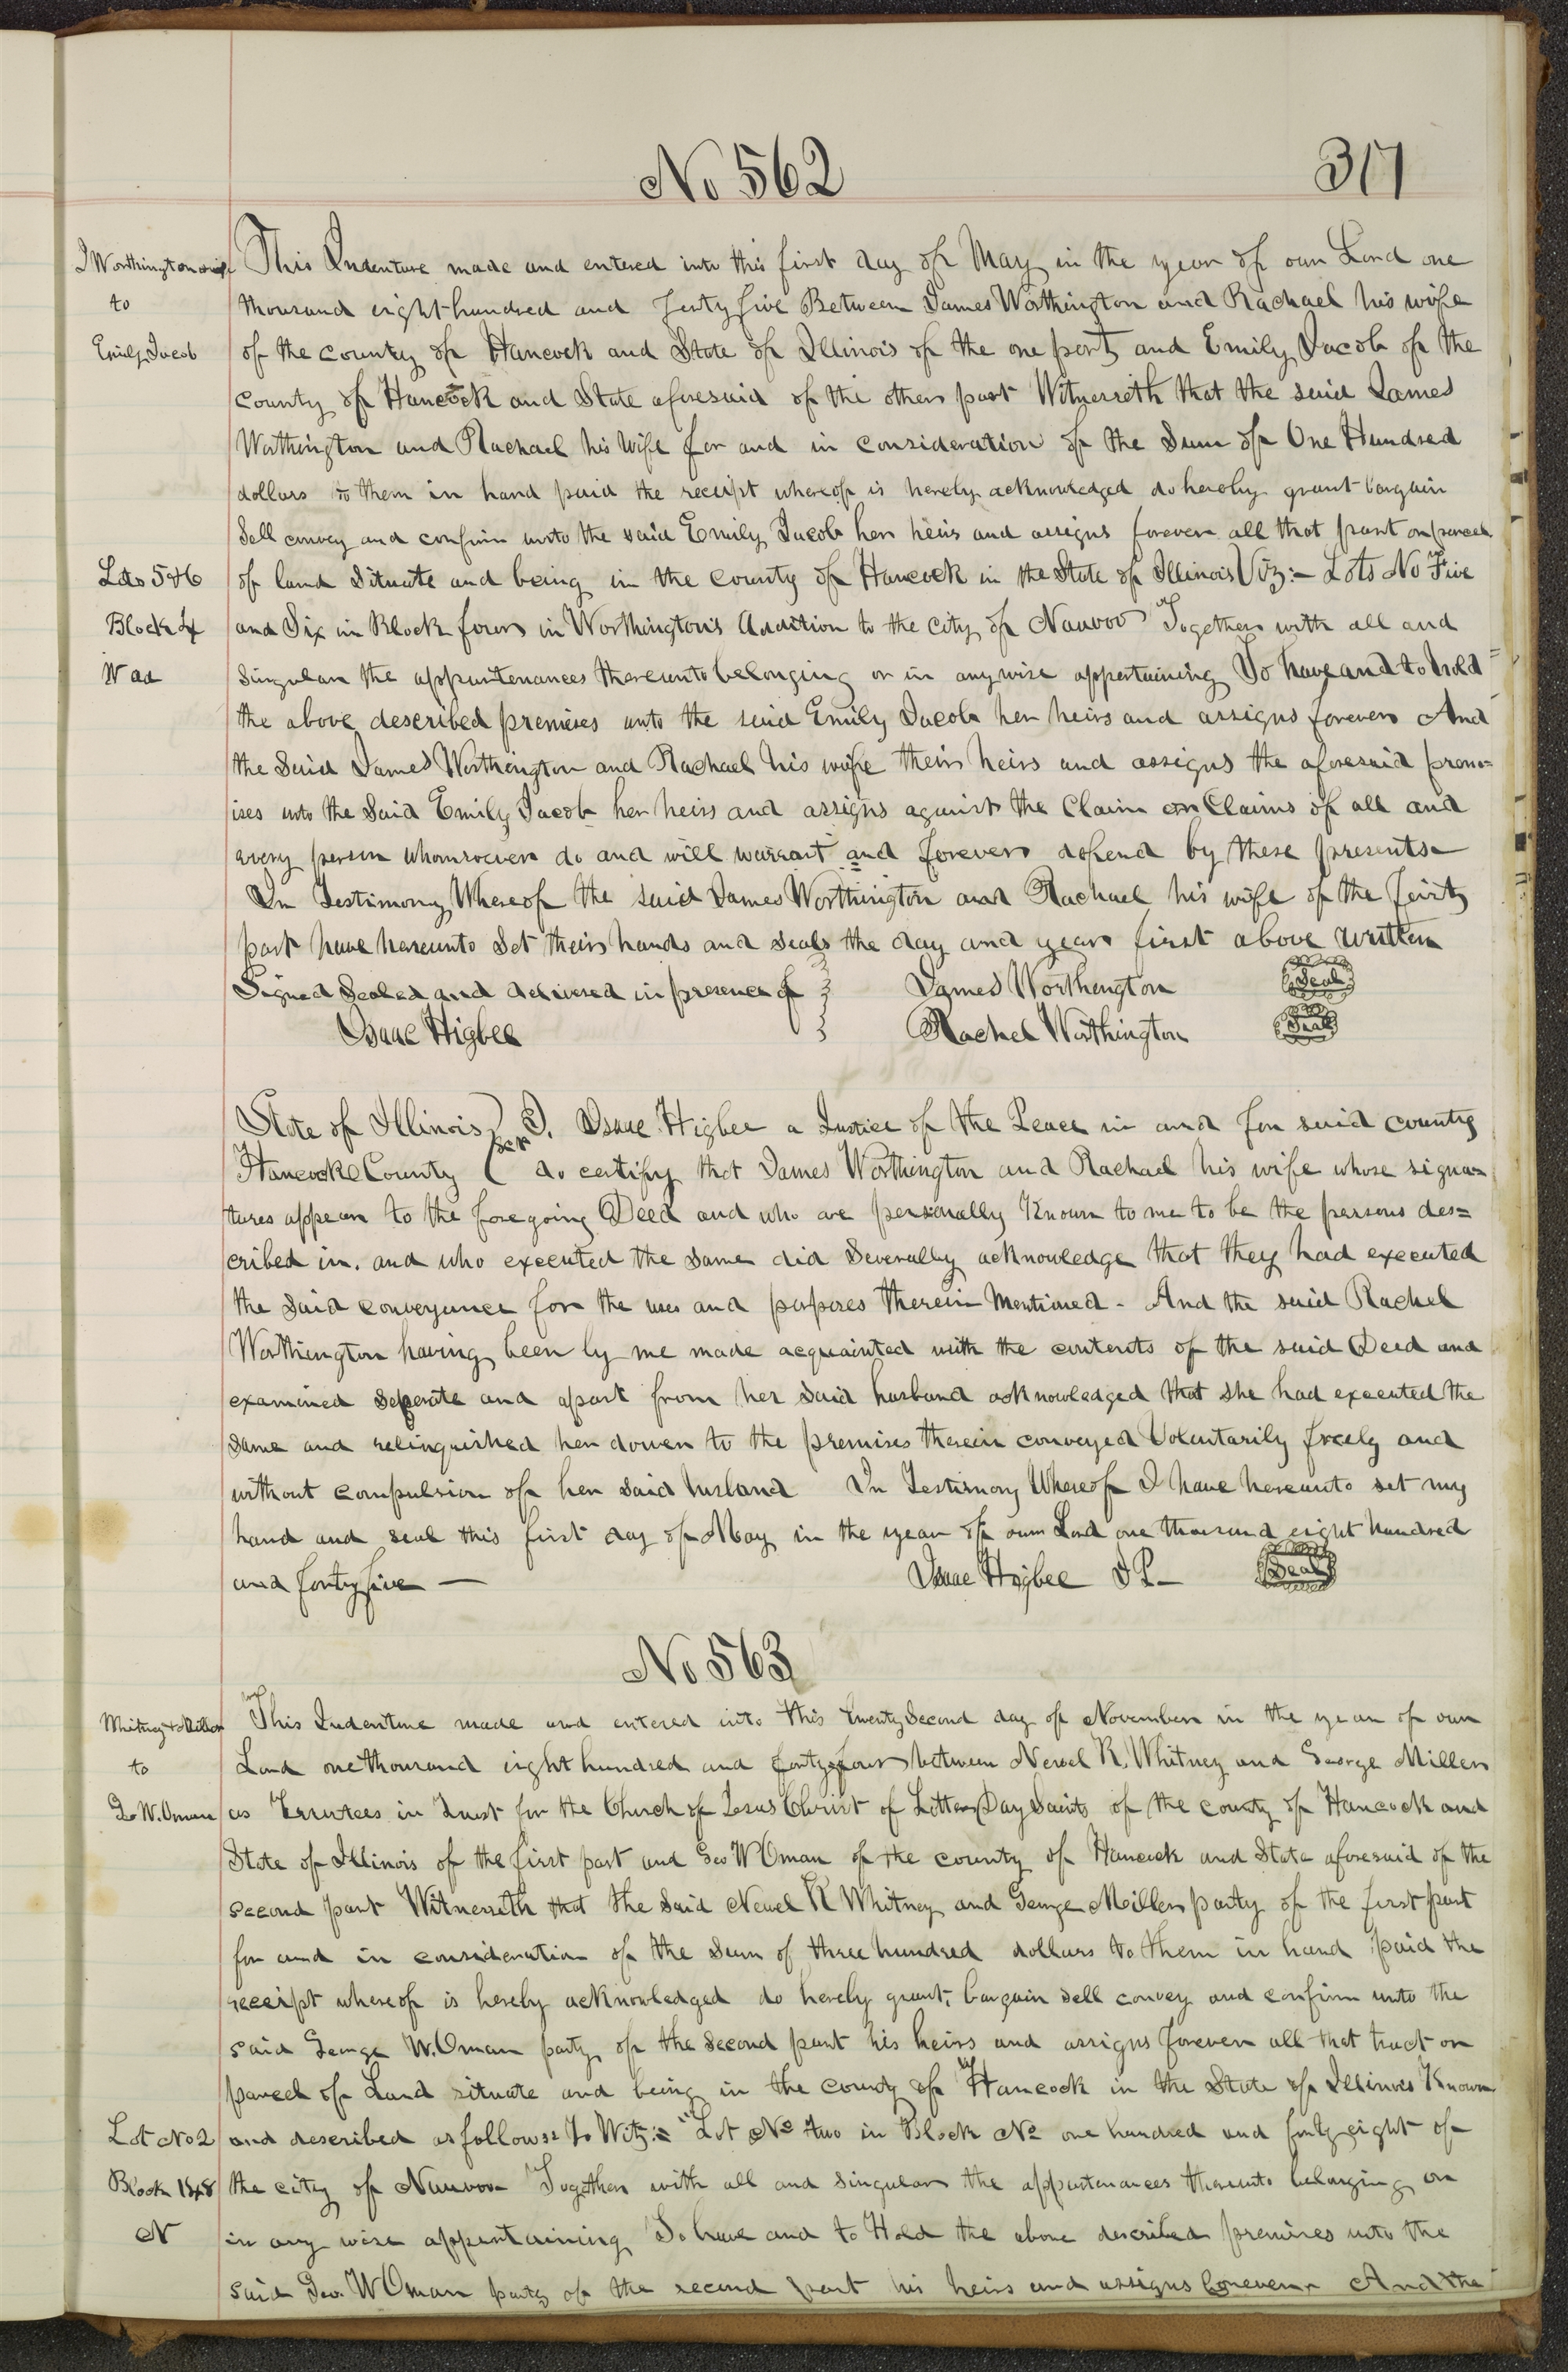 No 562
317
J Worthington & wife
to
Emily Jacob
This Indenture made and entered into this first day of May in the year of our Lord one
thousand eight hundred and forty five Between James Worthington and Rachael his wife
of the county of Hancock and State of Illinois of the one part and Emily Jacob of the
County of Hancock and State aforesaid of the other part Witnesseth that the said James
Worthington and Rachael his Wife for and in consideration of the Sum of One Hundred
dollars to them in hand paid the receipt whereof is hereby acknowledged do hereby grant bargain
Sell convey and confirm unto the said Emily Jacob her heirs and assigns forever all that part or parcel
Lots 5 & 6
Block 4
W ad
of land Situate and being in the County of Hancock in the State of Illinois Viz:- Lots No Five
and Six in Block four in Worthington's Addition to the City of Nauvoo Together with all and
Singular the appurtenances thereunto belonging or in anywise appertaining To have and to hold
the above described premises unto the said Emily Jacob her heirs and assigns forever And
the Said James Worthington and Rachael his wife their heirs and assigns the aforesaid prem=
ises unto the Said Emily Jacob her heirs and assigns against the Claim or Claims of all and
every person whomsoever do and will warrant and forever defend by these presents
In Testimony Whereof the said James Worthington and Rachael his wife of the first
part have hereunto Set their hands and Seals the day and year first above written
Signed Sealed and delivered in presence of
James Worthington Seal
Isaac Higbee
Rachel Worthington Seal
State of Illinois
Hancock County
Sct
I. Isaac Higbee a Justice of the Peace in and for said county
do certify that James Worthington and Rachael his wife whose signa=
tures appear to the foregoing Deed and who are personally Known to me to be the persons des=
cribed in. and who executed the same did Severally acknowledge that they had executed
the Said conveyance for the uses and purposes therein Mentioned - And the said Rachel
Worthington having been by me made acquainted with the contents of the said Deed and
examined seperate and apart from her Said husband acknowledged that She had executed the
Same and relinquished her dower to the premises therein conveyed Voluntarily freely and
without compulsion of her Said husband In Testimony Whereof I have hereunto set my
hand and seal this first day of May in the year of our Lord one thousand eight hundred
and forty five — Isaac Higbee J P - Seal
No 563
Whitney & Miller
to
Geo W. Oman
This Indenture made and entered into this twenty Second day of November in the year of our
Lord one thousand eight hundred and forty four between Newel K. Whitney and George Miller
as Trustees in Trust for the Church of Jesus Christ of Latter Day Saints of the county of Hancock and
State of Illinois of the first part and Geo W Oman of the county of Hancock and State aforesaid of the
second part Witnesseth that the Said Newel K Whitney and George Miller party of the first part
for and in consideration of the Sum of three hundred dollars to them in hand paid the
receipt whereof is hereby acknowledged do hereby grant, bargain sell convey and confirm unto the
said George W. Oman party of the Second part his heirs and assigns forever all that tract or
parcel of Land situate and being in the county of Hancock in the State of Illinois Known
Lot No 2
Block 148
N
and described as follows: To Wit:= "Lot No two in Block No one hundred and forty eight of
the city of Nauvoo Together with all and Singular the appurtenances thereunto belonging or
in any wise appertaining To have and to Hold the above described premises unto the
said Geo. W Oman party of the second part his heirs and assigns forever And the